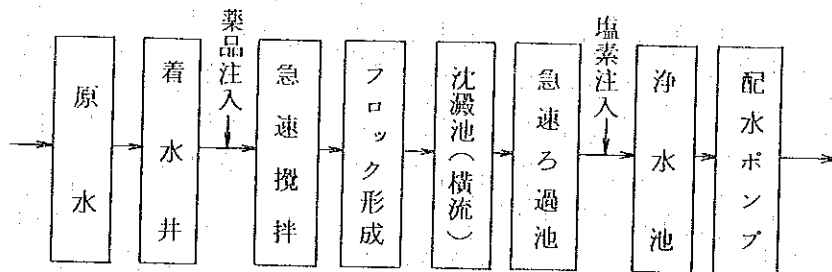 原水
着水井
薬品注入
急速攪拌
フロック形成
沈澱池(横流)
急速ろ過池
塩素注入
浄水池
配水ポンプ